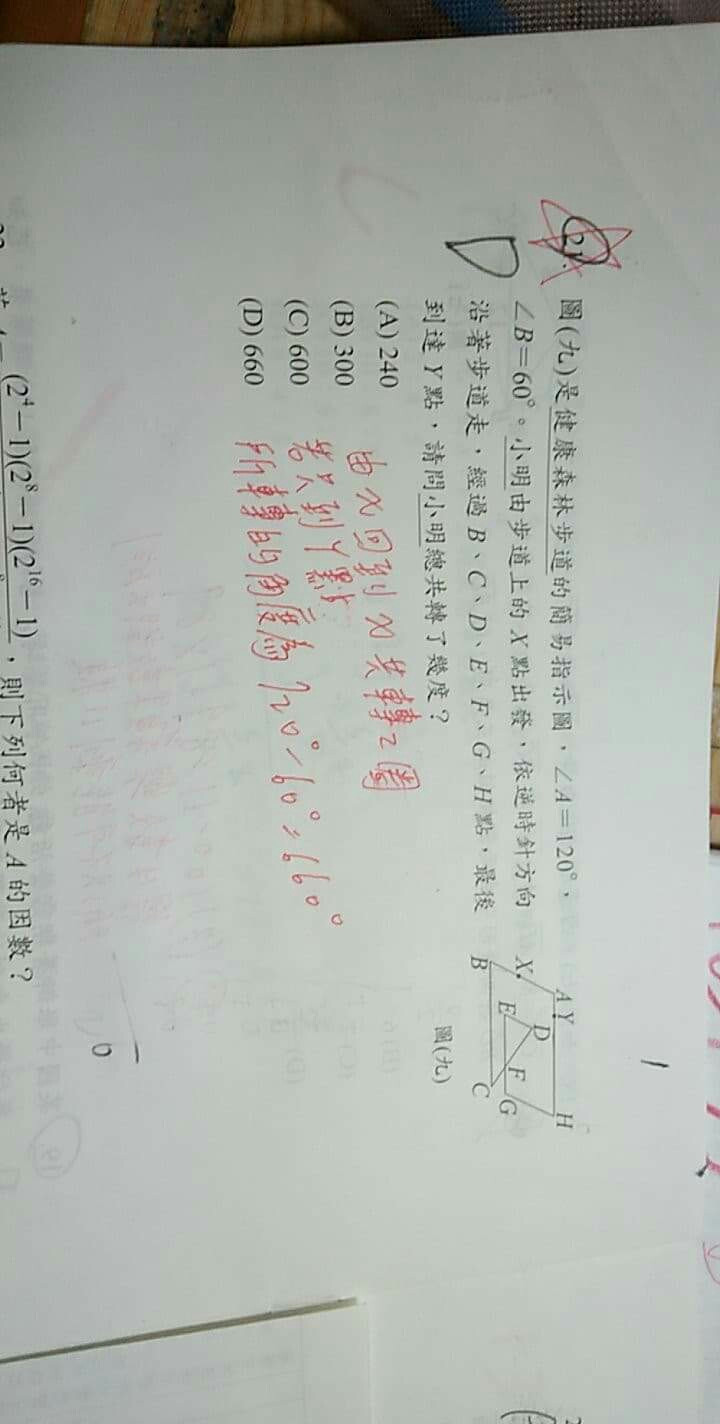 21.
圖(九)是健康森林步道的簡易指示圖，∠A=120°，
∠B=60°。小明由步道上的X點出發，依逆時針方向
沿著步道走，經過B、C、D、E、F、G、H點，最後
到達Y點，請問小明總共轉了幾度？
(A) 240
(B) 300
(C) 600
(D) 660
D
由X回到X共轉2圈
若只到Y點
所轉的角度為720°-60°=660°
A Y H
X D F
B E C G
圖(九)
(2⁴-1)(2⁸-1)(2¹⁶-1)
，則下列何者是A的因數？